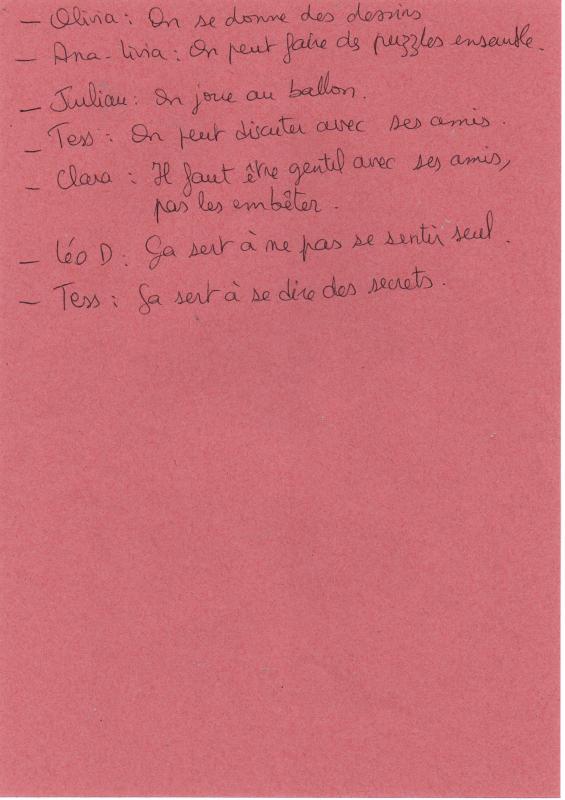 — Olivia : On se donne des dessins
— Ana-livia : On peut faire des puzzles ensemble.
— Julian : On joue au ballon.
— Tess : On peut discuter avec ses amis.
— Clara : Il faut être gentil avec ses amis,
pas les embêter.
— Léo D : Ça sert à ne pas se sentir seul.
— Tess : Ça sert à se dire des secrets.